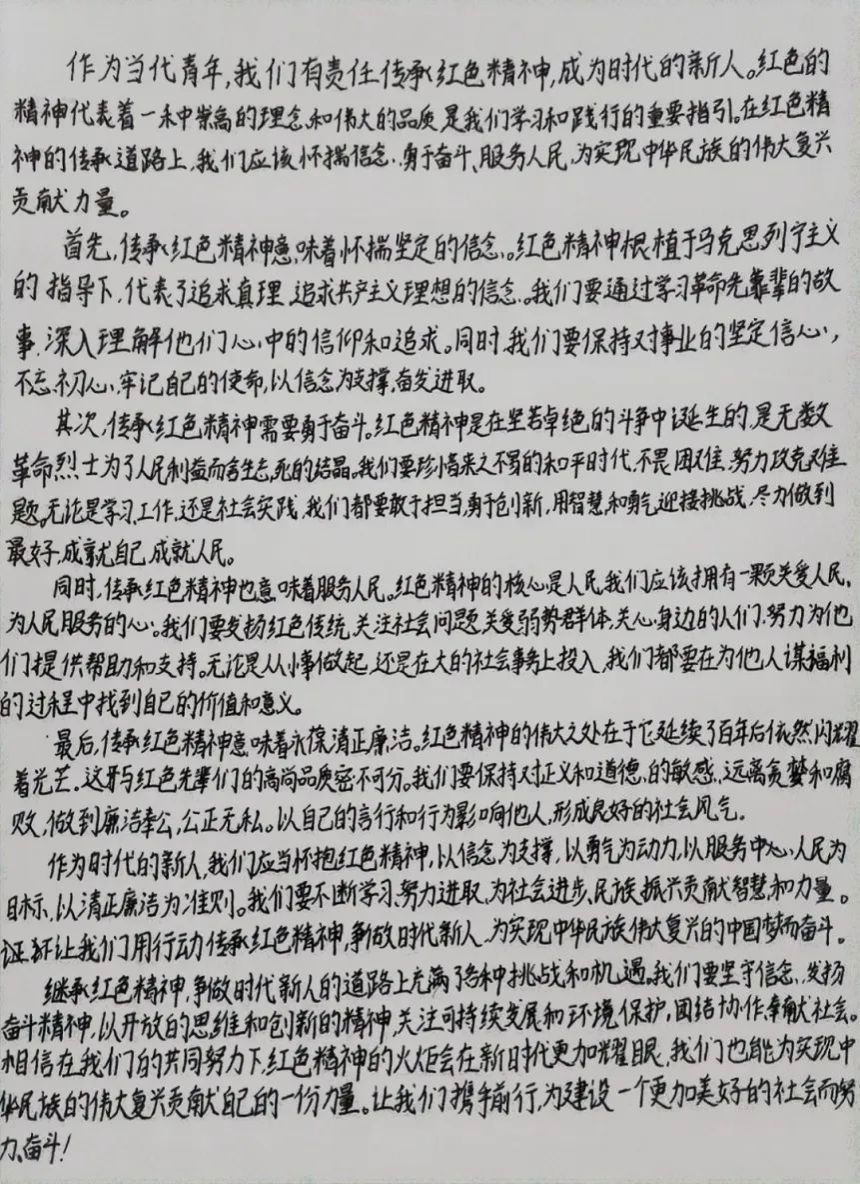 作为当代青年,我们有责任传承红色精神,成为时代的新人。红色的
精神代表着一种崇高的理念和伟大的品质,是我们学习和践行的重要指引。在红色精
神的传承道路上,我们应该怀揣信念、勇于奋斗、服务人民,为实现中华民族的伟大复兴
贡献力量。
首先,传承红色精神意味着怀揣坚定的信念。红色精神根植于马克思列宁主义
的指导下,代表了追求真理、追求共产主义理想的信念。我们要通过学习革命先辈的故
事,深入理解他们心中的信仰和追求。同时,我们要保持对事业的坚定信心,
不忘初心、牢记自己的使命,以信念为支撑,奋发进取。
其次,传承红色精神需要勇于奋斗。红色精神是在坚苦卓绝的斗争中诞生的,是无数
革命烈士为了人民利益而舍生忘死的结晶。我们要珍惜来之不易的和平时代,不畏困难,努力攻克难
题。无论是学习、工作,还是社会实践,我们都要敢于担当,勇于创新,用智慧和勇气迎接挑战,尽力做到
最好,成就自己,成就人民。
同时,传承红色精神也意味着服务人民。红色精神的核心是人民,我们应该拥有一颗关爱人民、
为人民服务的心。我们要发扬红色传统,关注社会问题,关爱弱势群体,关心身边的人们,努力为他
们提供帮助和支持。无论是从小事做起,还是在大的社会事务上投入,我们都要在为他人谋福利
的过程中找到自己的价值和意义。
最后,传承红色精神意味着永葆清正廉洁。红色精神的伟大之处在于它延续了百年后依然闪耀
着光芒,这与红色先辈们的高尚品质密不可分。我们要保持对正义和道德的敏感,远离贪婪和腐
败,做到廉洁奉公,公正无私。以自己的言行和行为影响他人,形成良好的社会风气。
作为时代的新人,我们应当怀抱红色精神,以信念为支撑,以勇气为动力,以服务中心、人民为
目标,以清正廉洁为准则。我们要不断学习、努力进取,为社会进步、民族振兴贡献智慧和力量。
让我们用行动传承红色精神,争做时代新人,为实现中华民族伟大复兴的中国梦而奋斗。
继承红色精神,争做时代新人的道路上充满了各种挑战和机遇。我们要坚守信念、发扬
奋斗精神,以开放的思维和创新的精神,关注可持续发展和环境保护,团结协作,奉献社会。
相信在我们的共同努力下,红色精神的火炬会在新时代更加耀眼,我们也能为实现中
华民族的伟大复兴贡献自己的一份力量。让我们携手前行,为建设一个更加美好的社会而努
力奋斗!